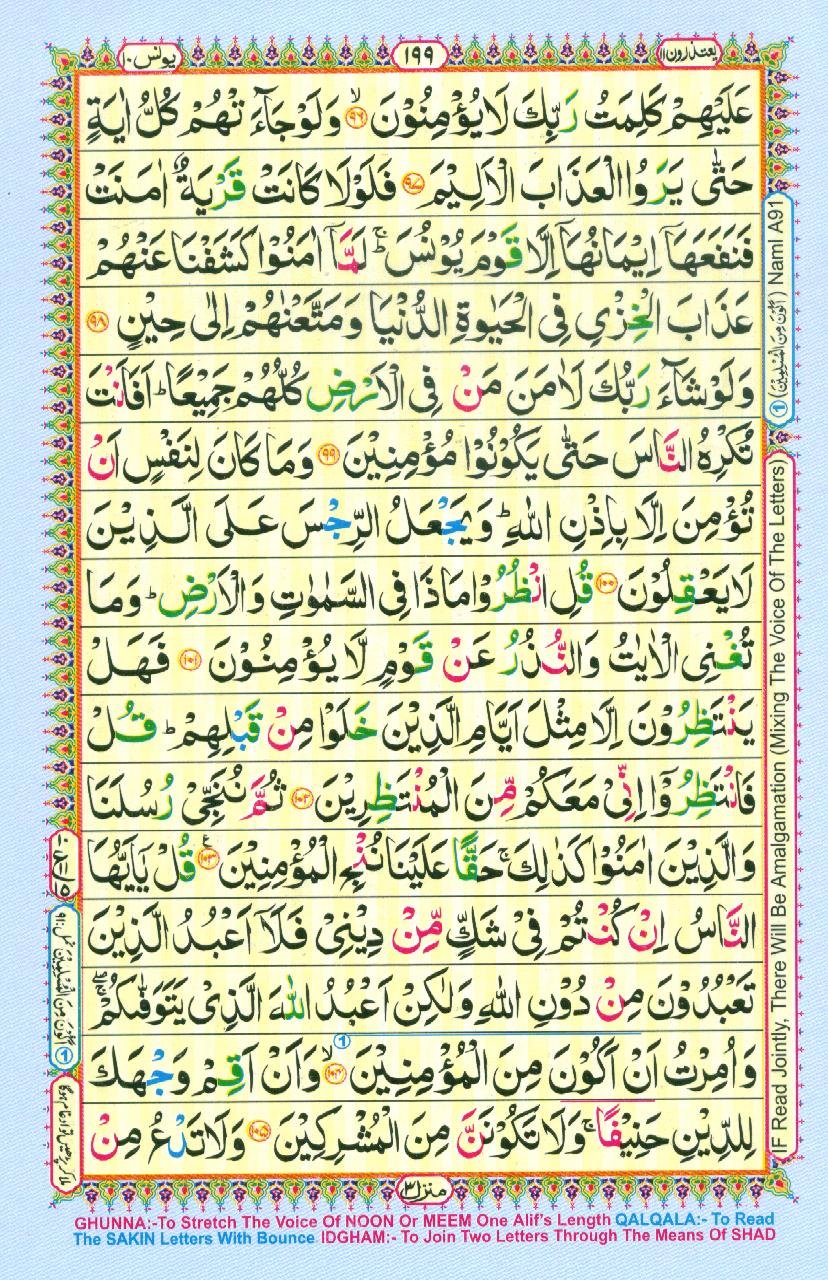 یعتذرون ۱۱
۱۹۹
یونس ۱۰
عَلَيۡهِمۡ كَلِمَتُ رَبِّكَ لَا يُؤۡمِنُوۡنَ ۙ‏﴿۹۶﴾ وَلَوۡ جَآءَتۡهُمۡ كُلُّ اٰيَةٍ
حَتّٰى يَرَوُا الۡعَذَابَ الۡاَلِيۡمَ‏ ﴿۹۷﴾ فَلَوۡلَا كَانَتۡ قَرۡيَةٌ اٰمَنَتۡ
فَنَفَعَهَاۤ اِيۡمَانُهَاۤ اِلَّا قَوۡمَ يُوۡنُسَ ؕۚ لَمَّاۤ اٰمَنُوۡا كَشَفۡنَا عَنۡهُمۡ
عَذَابَ الۡخِزۡىِ فِى الۡحَيٰوةِ الدُّنۡيَا وَمَتَّعۡنٰهُمۡ اِلٰى حِيۡنٍ‏ ﴿۹۸﴾
وَلَوۡ شَآءَ رَبُّكَ لَاٰمَنَ مَنۡ فِى الۡاَرۡضِ كُلُّهُمۡ جَمِيۡعًا ؕ اَفَاَنۡتَ
تُكۡرِهُ النَّاسَ حَتّٰى يَكُوۡنُوۡا مُؤۡمِنِيۡنَ‏ ﴿۹۹﴾ وَمَا كَانَ لِنَفۡسٍ اَنۡ
تُؤۡمِنَ اِلَّا بِاِذۡنِ اللّٰهِ‌ؕ وَيَجۡعَلُ الرِّجۡسَ عَلَى الَّذِيۡنَ
لَا يَعۡقِلُوۡنَ‏ ﴿۱۰۰﴾ قُلِ انْظُرُوۡا مَاذَا فِى السَّمٰوٰتِ وَالۡاَرۡضِ‌ؕ وَمَا
تُغۡنِى الۡاٰيٰتُ وَالنُّذُرُ عَنۡ قَوۡمٍ لَّا يُؤۡمِنُوۡنَ‏ ﴿۱۰۱﴾ فَهَلۡ
يَنۡتَظِرُوۡنَ اِلَّا مِثۡلَ اَيَّامِ الَّذِيۡنَ خَلَوۡا مِنۡ قَبۡلِهِمۡ‌ؕ قُلۡ
فَانْتَظِرُوۡۤا اِنِّىۡ مَعَكُمۡ مِّنَ الۡمُنۡتَظِرِيۡنَ‏ ﴿۱۰۲﴾ ثُمَّ نُنَجِّىۡ رُسُلَنَا
وَالَّذِيۡنَ اٰمَنُوۡا‌ كَذٰلِكَ‌ۚ حَقًّا عَلَيۡنَا نُنۡجِ الۡمُؤۡمِنِيۡنَ ‏﴿۱۰۳﴾ قُلۡ يٰۤاَيُّهَا
النَّاسُ اِنۡ كُنۡتُمۡ فِىۡ شَكٍّ مِّنۡ دِيۡنِىۡ فَلَاۤ اَعۡبُدُ الَّذِيۡنَ
تَعۡبُدُوۡنَ مِنۡ دُوۡنِ اللّٰهِ وَلٰـكِنۡ اَعۡبُدُ اللّٰهَ الَّذِىۡ يَتَوَفّٰٮكُمۡ ۖۚ
وَاُمِرۡتُ اَنۡ اَكُوۡنَ مِنَ الۡمُؤۡمِنِيۡنَۙ‏ ﴿۱۰۴﴾ وَاَنۡ اَقِمۡ وَجۡهَكَ
لِلدِّيۡنِ حَنِيۡفًا‌ ۚ وَلَا تَكُوۡنَنَّ مِنَ الۡمُشۡرِكِيۡنَ‏ ﴿۱۰۵﴾ وَلَا تَدۡعُ مِنۡ
منزل ۳
IF Read Jointly, There Will Be Amalgamation (Mixing The Voice Of The Letters)
① (اَكُوۡنَ مِنَ الۡمُسۡلِمِيۡنَ) Naml A91
① اَكُوۡنَ مِنَ الۡمُسۡلِمِيۡنَ نمل:۹۱
ملا کر پڑھیں تو ادغام ہوگا
GHUNNA:-To Stretch The Voice Of NOON Or MEEM One Alif's Length QALQALA:- To Read
The SAKIN Letters With Bounce IDGHAM:- To Join Two Letters Through The Means Of SHAD